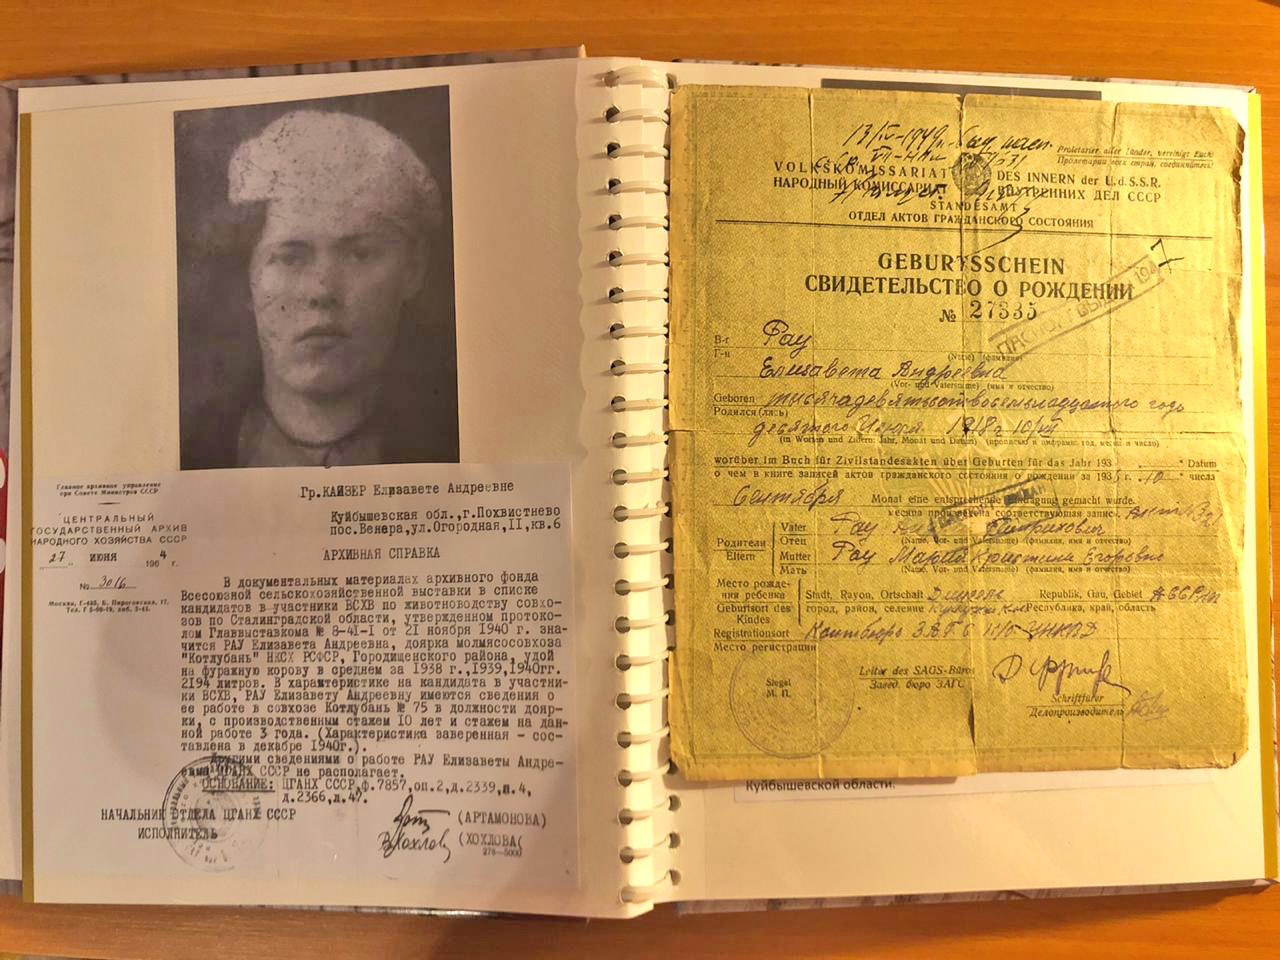 Главное архивное управление
при Совете Министров СССР
ЦЕНТРАЛЬНЫЙ
ГОСУДАРСТВЕННЫЙ АРХИВ
НАРОДНОГО ХОЗЯЙСТВА СССР
"27" июня 1964 г.
№ 3016
Москва, Г-435, Б. Пироговская, 17.
Гр.КАЙЗЕР Елизавете Андреевне
Куйбышевская обл.,г.Похвистнево
пос.Венера,ул.Огородная,II,кв.6
АРХИВНАЯ СПРАВКА
В документальных материалах архивного фонда
Всесоюзной сельскохозяйственной выставки в списке
кандидатов в участники ВСХВ по животноводству совхо-
зов по Сталинградской области, утвержденном протоко-
лом Главвыставкома № 8-41-I от 21 ноября 1940 г. зна-
чится РАУ Елизавета Андреевна, доярка молмясосовхоза
"Котлубань" НКСХ РСФСР, Городищенского района, удой
на фуражную корову в среднем за 1938 г.,1939,1940гг.
2194 литров. В характеристике на кандидата в участни-
ки ВСХВ, РАУ Елизавету Андреевну имеются сведения о
ее работе в совхозе Котлубань № 75 в должности дояр-
ки, с производственным стажем IO лет и стажем на дан-
ной работе 3 года. (Характеристика заверенная - сос-
тавлена в декабре 1940г.).
Другими сведениями о работе РАУ Елизаветы Андре-
евны ЦГАНХ СССР не располагает.
ОСНОВАНИЕ: ЦГАНХ СССР,ф.7857,оп.2,д.2339,л.4,
д.2366,л.47.
НАЧАЛЬНИК ОТДЕЛА ЦГАНХ СССР (АРТАМОНОВА)
ИСПОЛНИТЕЛЬ В.Хохлова (ХОХЛОВА(
276—5000
Proletarier aller Länder, vereinigt Euch!
Пролетарии всех стран, соединяйтесь!
VOLKSKOMISSARIAT DES INNERN der U.d.S.S.R.
НАРОДНЫЙ КОМИССАРИАТ ВНУТРЕННИХ ДЕЛ СССР
STANDESAMT
ОТДЕЛ АКТОВ ГРАЖДАНСКОГО СОСТОЯНИЯ
GEBURTSSCHEIN
СВИДЕТЕЛЬСТВО О РОЖДЕНИИ
№ 27335
В-г Рау
Г-н (Name) (фамилия)
Елизавета Андреевна
(Vor- und Vatersname) (имя и отчество)
Geboren тысячадевятьсотвосемьнадцатого года
Родился(лась)
десятого Июля 1918 г 10/VII
(in Worten und Ziffern: Jahr, Monat und Datum) (прописью и цифрами: год, месяц и число)
worüber im Buch für Zivilstandesakten über Geburten für das Jahr 193 Datum
о чем в книге записей актов гражданского состояния о рождении за 193 10 числа
Сентября Monat eine entsprechende Eintragung gemacht wurde.
месяца произведена соответствующая запись
Родители Eltern
Vater Рау
Отец (Name, Vor- und Vatersname) (фамилия, имя и отчество)
Mutter Рау Мария Кристина Егоровна
Мать (Name, Vor- und Vatersname) (фамилия, имя и отчество)
Место рожде-
ния ребенка Stadt, Rayon, Ortschaft Republik, Gau, Gebiet АССРНП
Geburtsort des город, район, селение Республика, край, область
Kindes
Registrationsort
Место регистрации
Siegel
М. П.
Leiter des SAGS-Büros
Завед. бюро ЗАГС
Schriftführer
Делопроизводитель
Куйбышевской области.